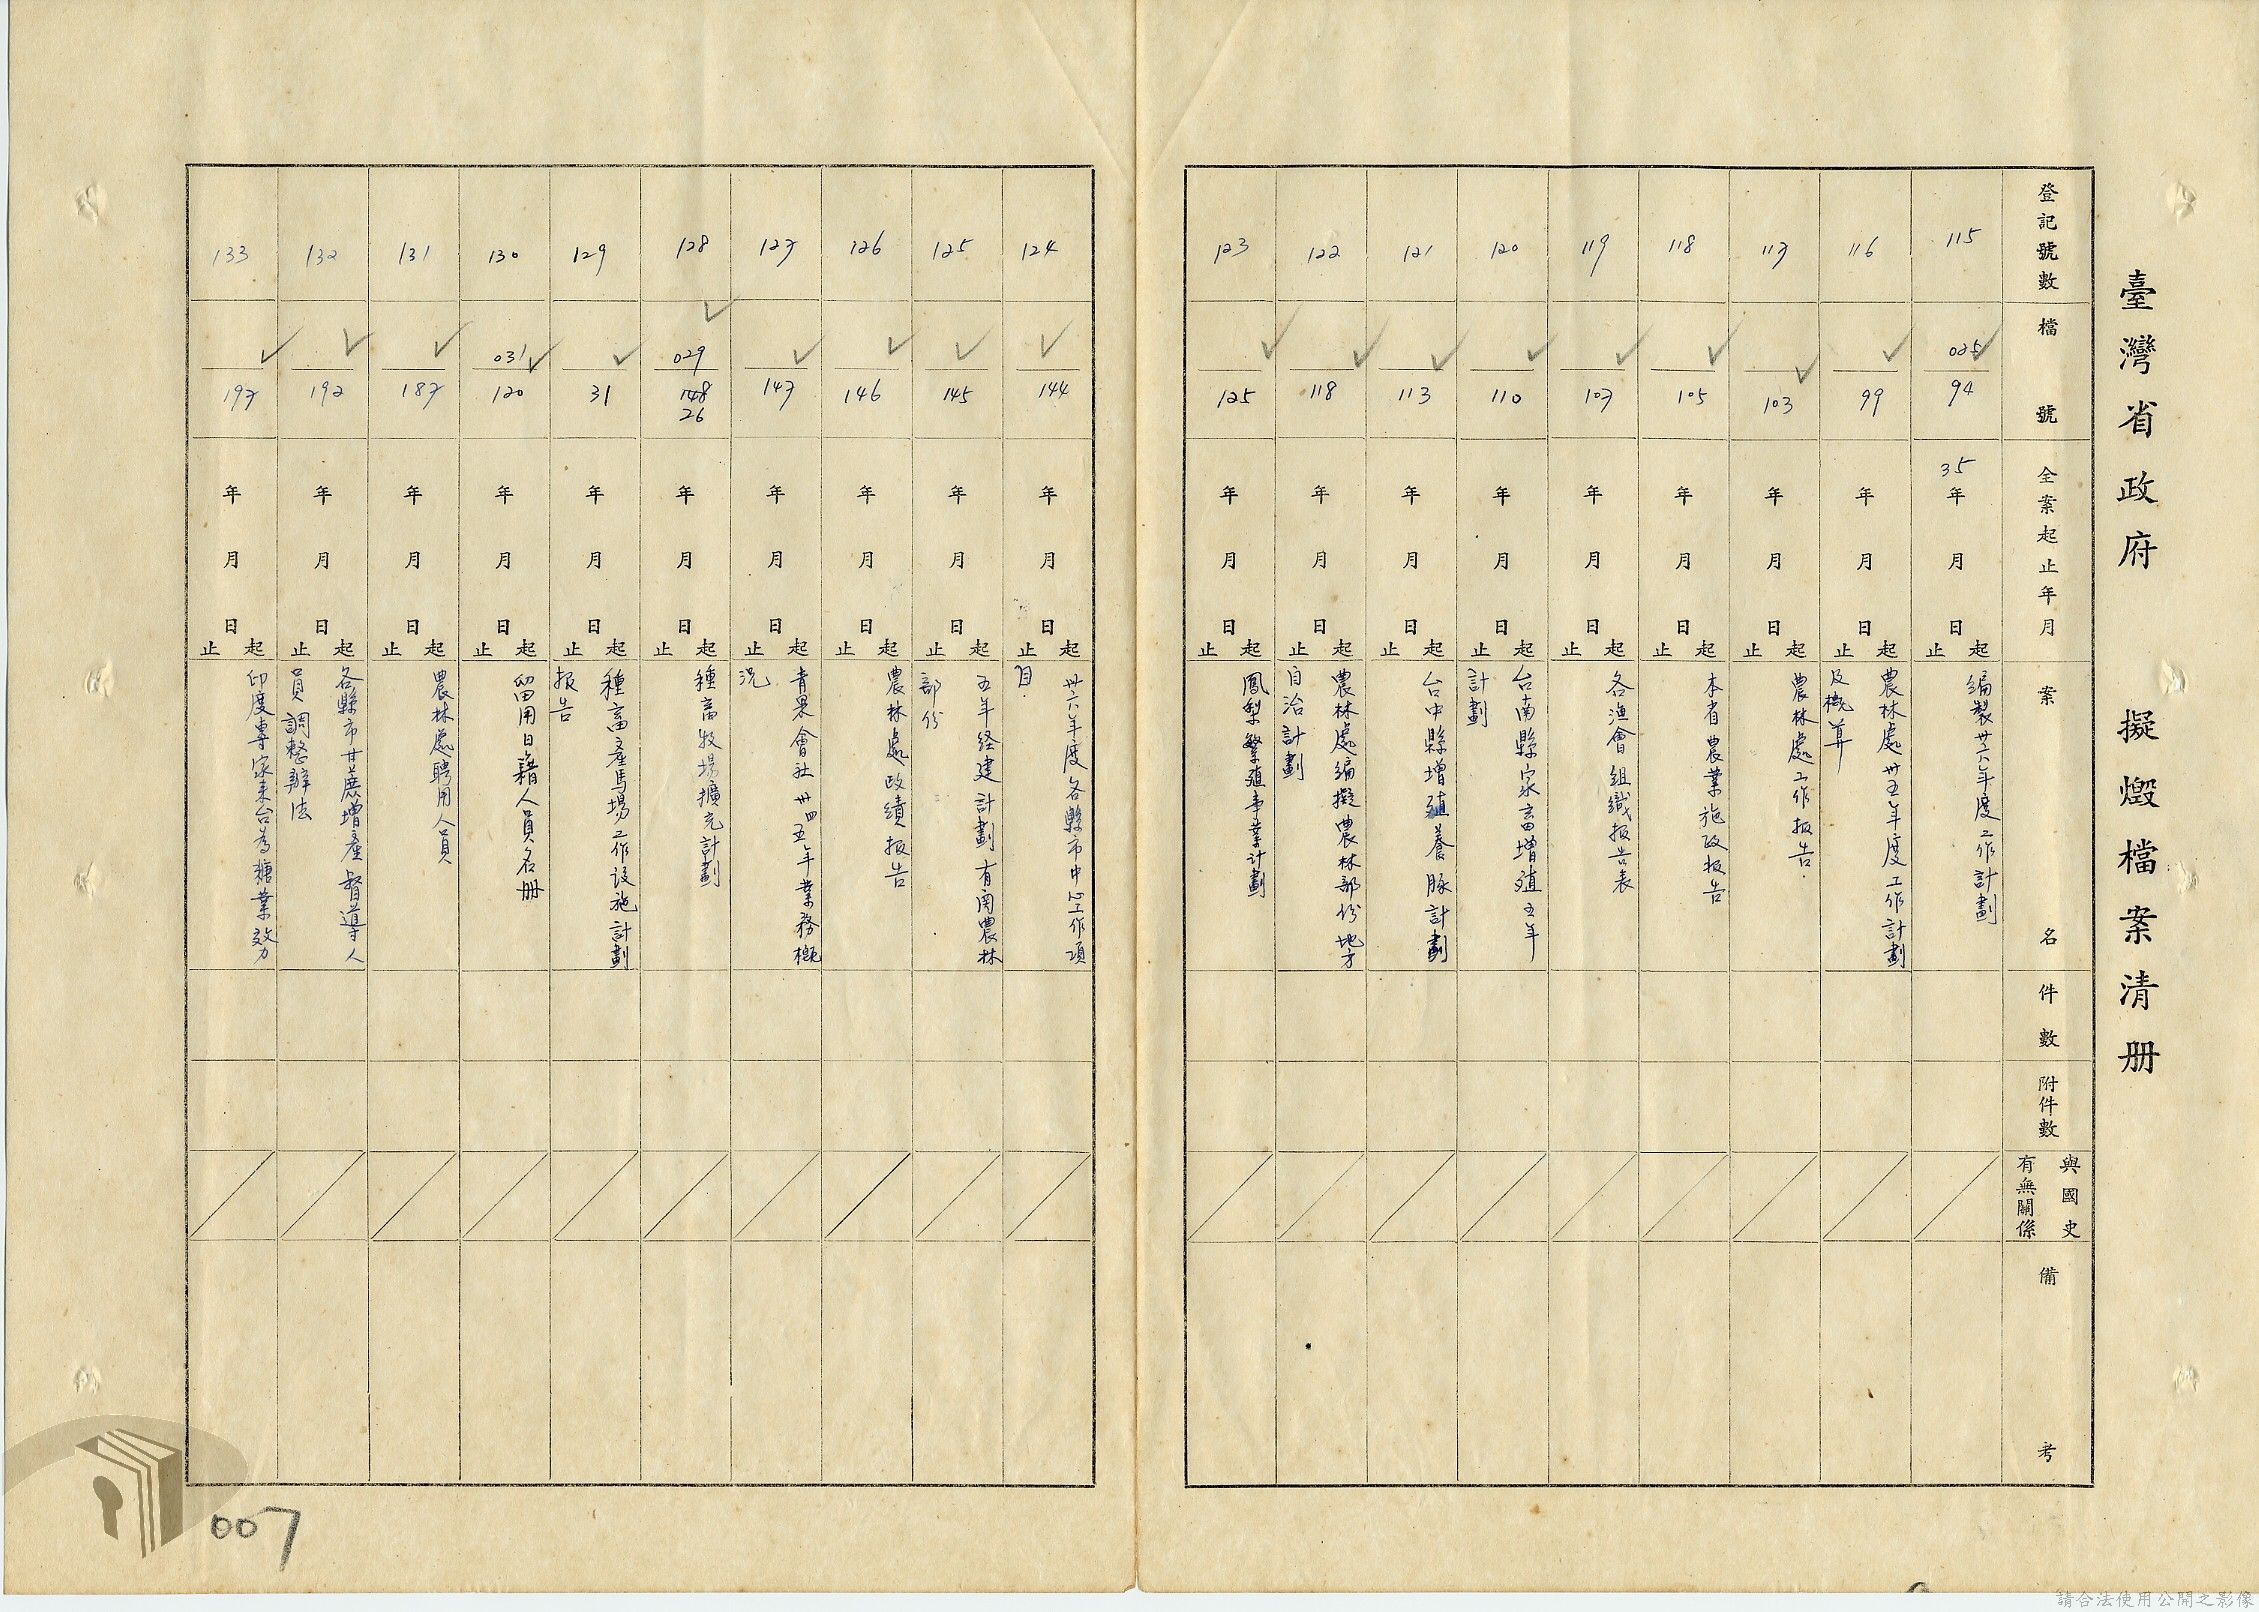 臺灣省政府 擬燬檔案清册
登記號數
檔號
全案起止年月
案名
件數
附件數
與國史有無關係
備考
115
025
94
35年月日起止
編製卅六年度工作計劃
116
99
年月日起止
農林處卅五年度工作計劃
及概算
117
103
年月日起止
農林處工作报告.
118
105
年月日起止
本省農業施政报告
119
107
年月日起止
各渔會組織报告表
120
110
年月日起止
台南縣家畜增殖五年
計劃
121
113
年月日起止
台中縣增殖養豚計劃
122
118
年月日起止
農林處編擬農林部份地方
自治計劃
123
125
年月日起止
鳳梨繁殖事業計劃
124
144
年月日起止
卅六年度各縣市中心工作項
目.
125
145
年月日起止
五年経建計劃有関農林
部份
126
146
年月日起止
農林處政績报告
127
147
年月日起止
青果會社卅四五年業務概
況
128
029
148
26
年月日起止
種畜牧場擴充計劃
129
31
年月日起止
種畜產馬場工作设施計劃
报告
130
031
120
年月日起止
留用日籍人員名册
131
187
年月日起止
農林處聘用人員
132
192
年月日起止
各縣市甘蔗增產督導人
員調整辦法
133
197
年月日起止
印度專家来台為糖業效力
007
請合法使用公開之影像